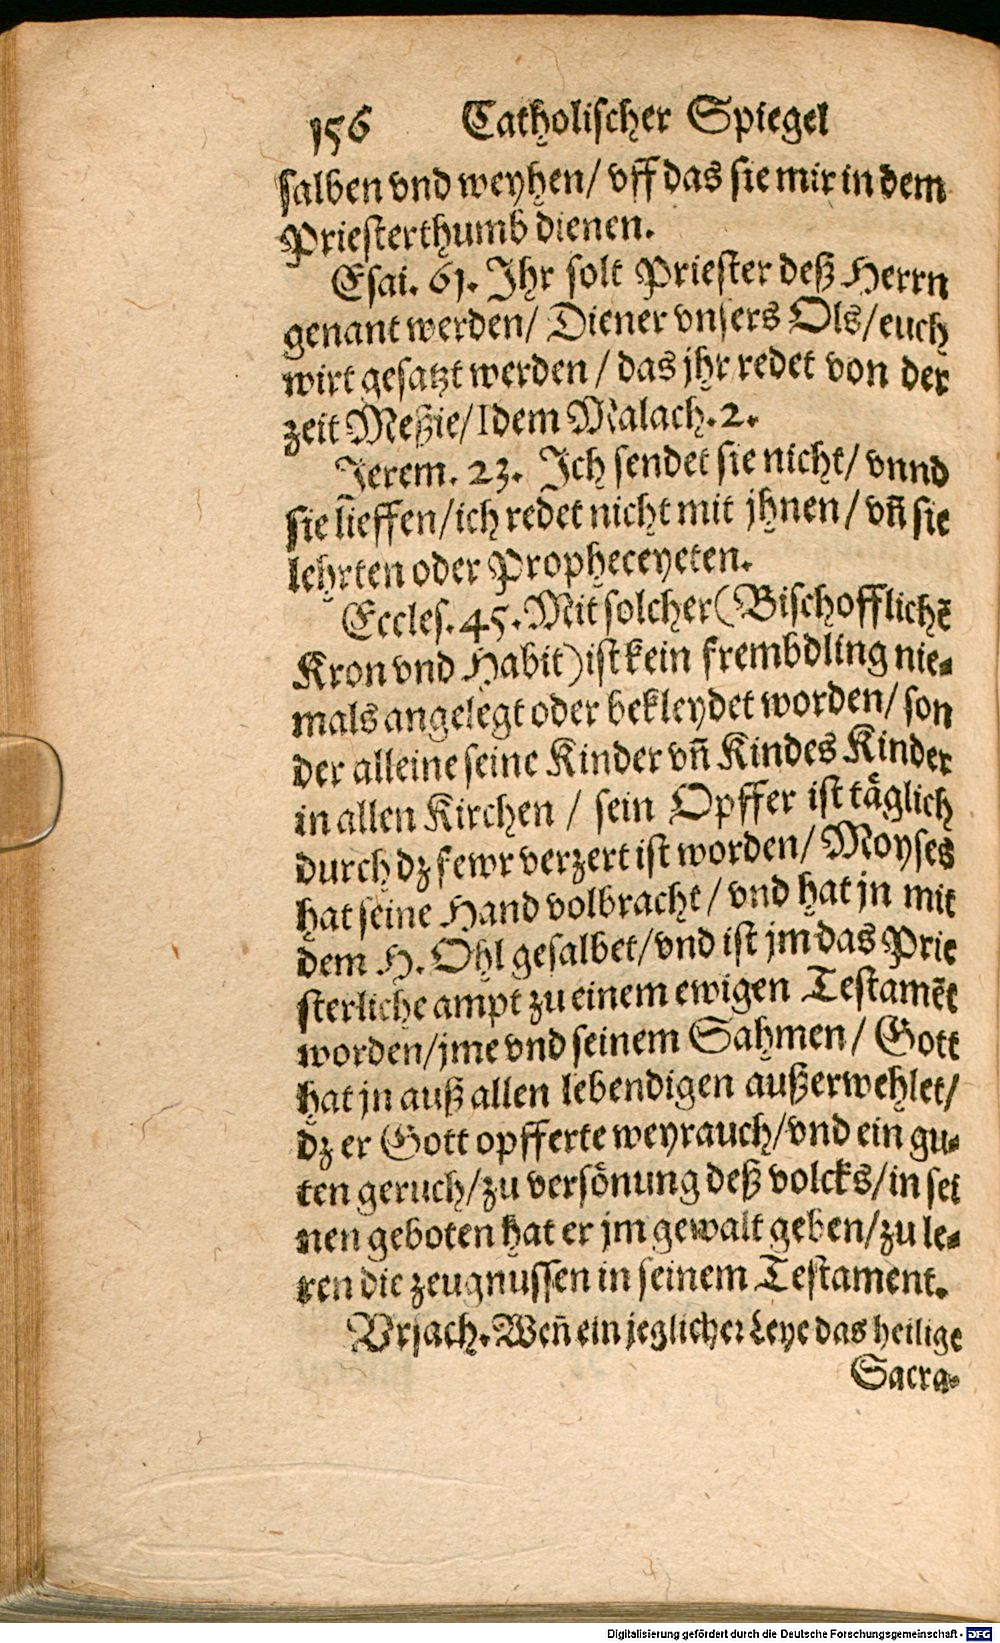 156 Catholischer Spiegel
salben vnd weyhen/ vff das sie mir in dem
Priesterthumb dienen.
Esai. 61. Ihr solt Priester deß Herrn
genant werden/ Diener vnsers Ols/ euch
wirt gesatzt werden / das jhr redet von der
zeit Meßie/ Idem Malach. 2.
Jerem. 23. Ich sendet sie nicht/ vnnd
sie lieffen/ ich redet nicht mit jhnen / vñ sie
lehrten oder Propheceyeten.
Eccles. 45. Mit solcher (Bischofflichẽ
Kron vnd Habit) ist kein frembdling nie-
mals angelegt oder bekleydet worden/ son
der alleine seine Kinder vñ Kindes Kinder
in allen Kirchen / sein Opffer ist täglich
durch dz fewr verzert ist worden/ Moyses
hat seine Hand volbracht / vnd hat jn mit
dem H. Ohl gesalbet/ vnd ist jm das Prie
sterliche ampt zu einem ewigen Testamẽt
worden/ jme vnd seinem Sahmen/ Gott
hat jn auß allen lebendigen außerwehlet/
dz er Gott opfferte weyrauch/ vnd ein gu-
ten geruch/ zu versönung deß volcks/ in sei
nen geboten hat er jm gewalt geben/ zu le-
ren die zeugnussen in seinem Testament.
Vrsach. Weñ ein jeglicher Leye das heilige
Sacra-
Digitalisierung gefördert durch die Deutsche Forschungsgemeinschaft - DFG